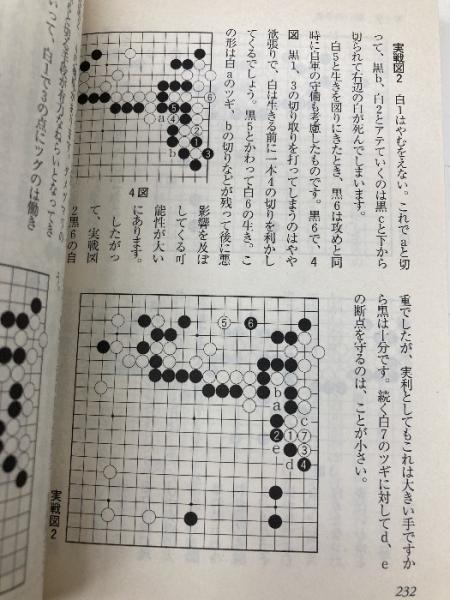 実戦図2 白1はやむをえない。これでaと切
って、黒b、白2とアテていくのは黒cと下から
切られて右辺の白が死んでしまいます。
白5と生きを図りにきたとき、黒6は攻めと同
時に自軍の守備も考慮したものです。黒6で、4
図 黒1、3の切り取りを打ってしまうのはやや
欲張りで、白は生きる前に一本4の切りを利かし
てくるでしょう。黒5とかわって白6の生き。こ
の形は白aのツギ、bの切りなどが残って後に悪
影響を及ぼ
してくる可
能性が大い
にあります。
したがっ
て、実戦図
2黒6の自
重でしたが、実利としてもこれは大きい手ですか
ら黒は十分です。続く白7のツギに対してd、e
の断点を守るのは、ことが小さい。
5
4
6
a
2
1
b
3
4図
5
6
b
a
c
2
1
7
e
3
d
4
実戦図2
232
って、白1で4の点にツグのは働き